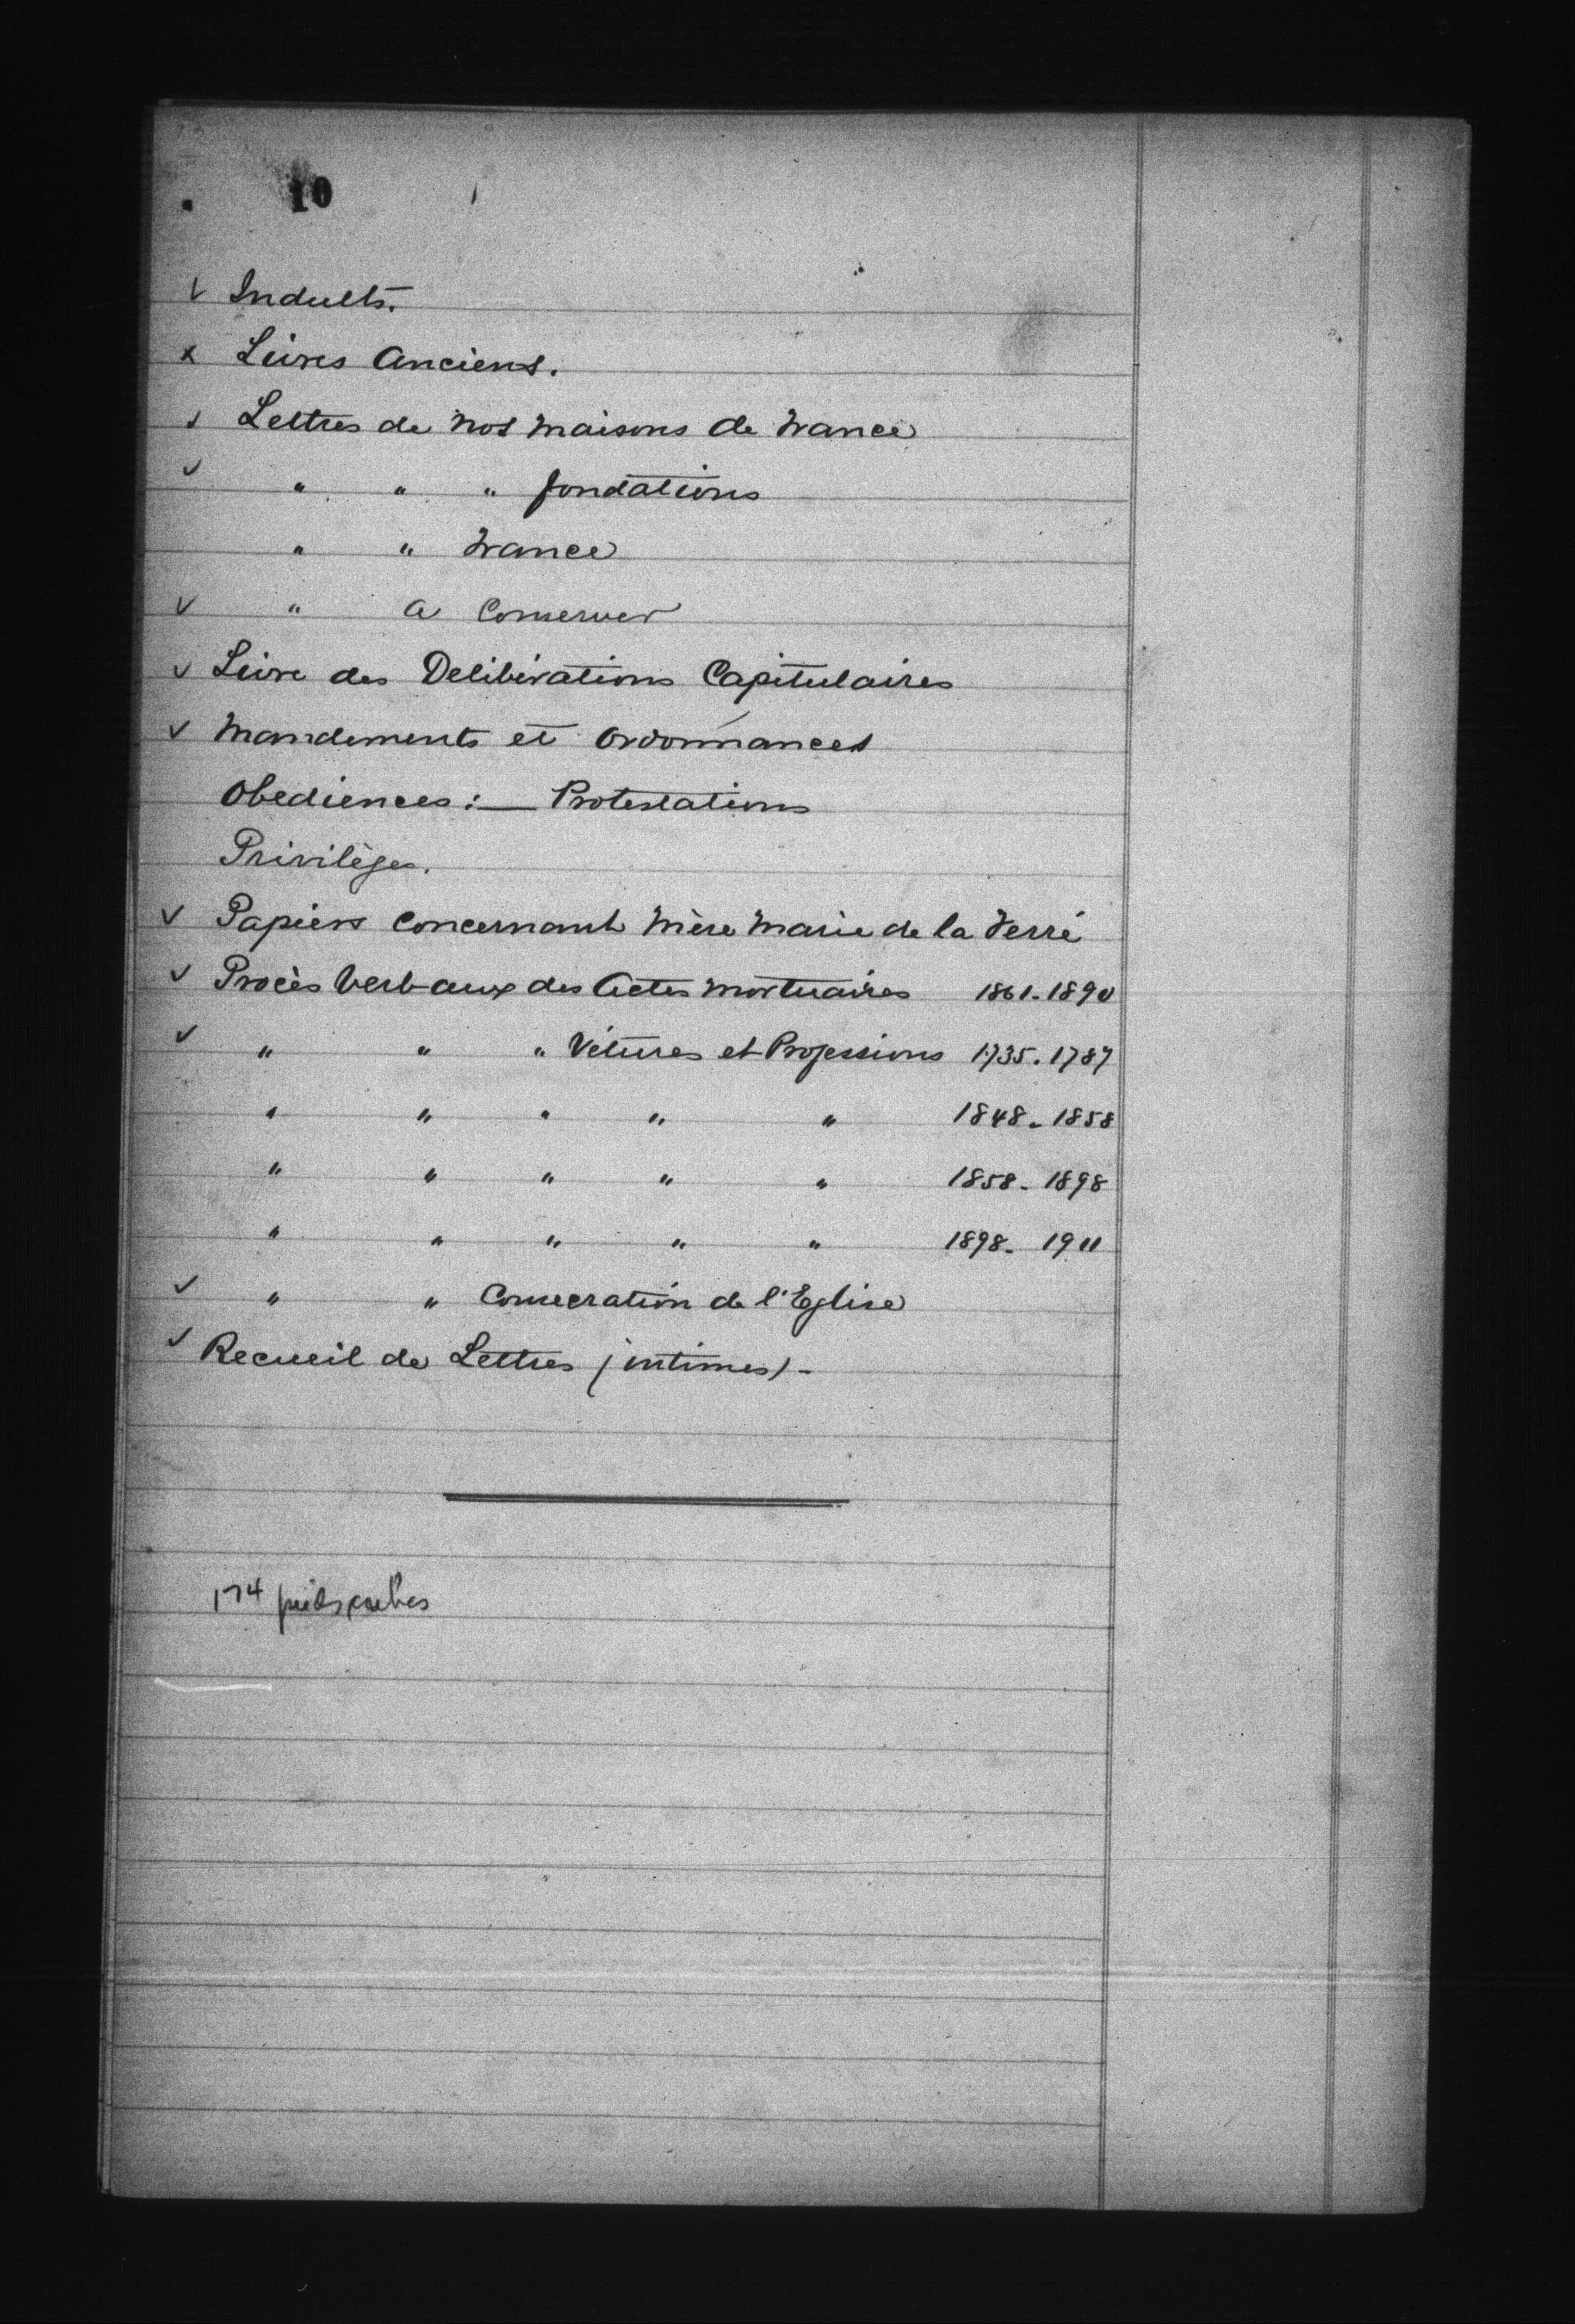 10
✓ Indults.
x Livres Anciens.
✓ Lettres de nos maisons de France
✓ " " " fondations
" " France
✓ " a Conserver
✓ Livre des Delibérations Capitulaires
✓ Mandements et Ordonnances
Obediences :— Protestations
Privilèges.
✓ Papiers concernant Mère Marie de la Ferré
✓ Procès Verbaux des Actes mortuaires 1861-1890
✓ " " " Vétures et Professions 1735.1787
" " " " " 1848-1858
" " " " " 1858-1898
" " " " " 1898-1911
✓ " " Consecration de l'Eglise
✓ Recueil de Lettres (intimes)-
174 pieds cubes